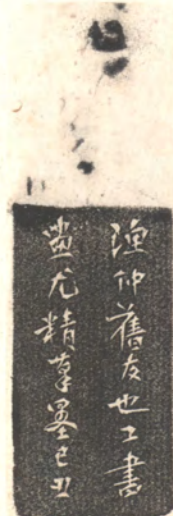 漁仲舊友也工書
畫尤精草墨己丑